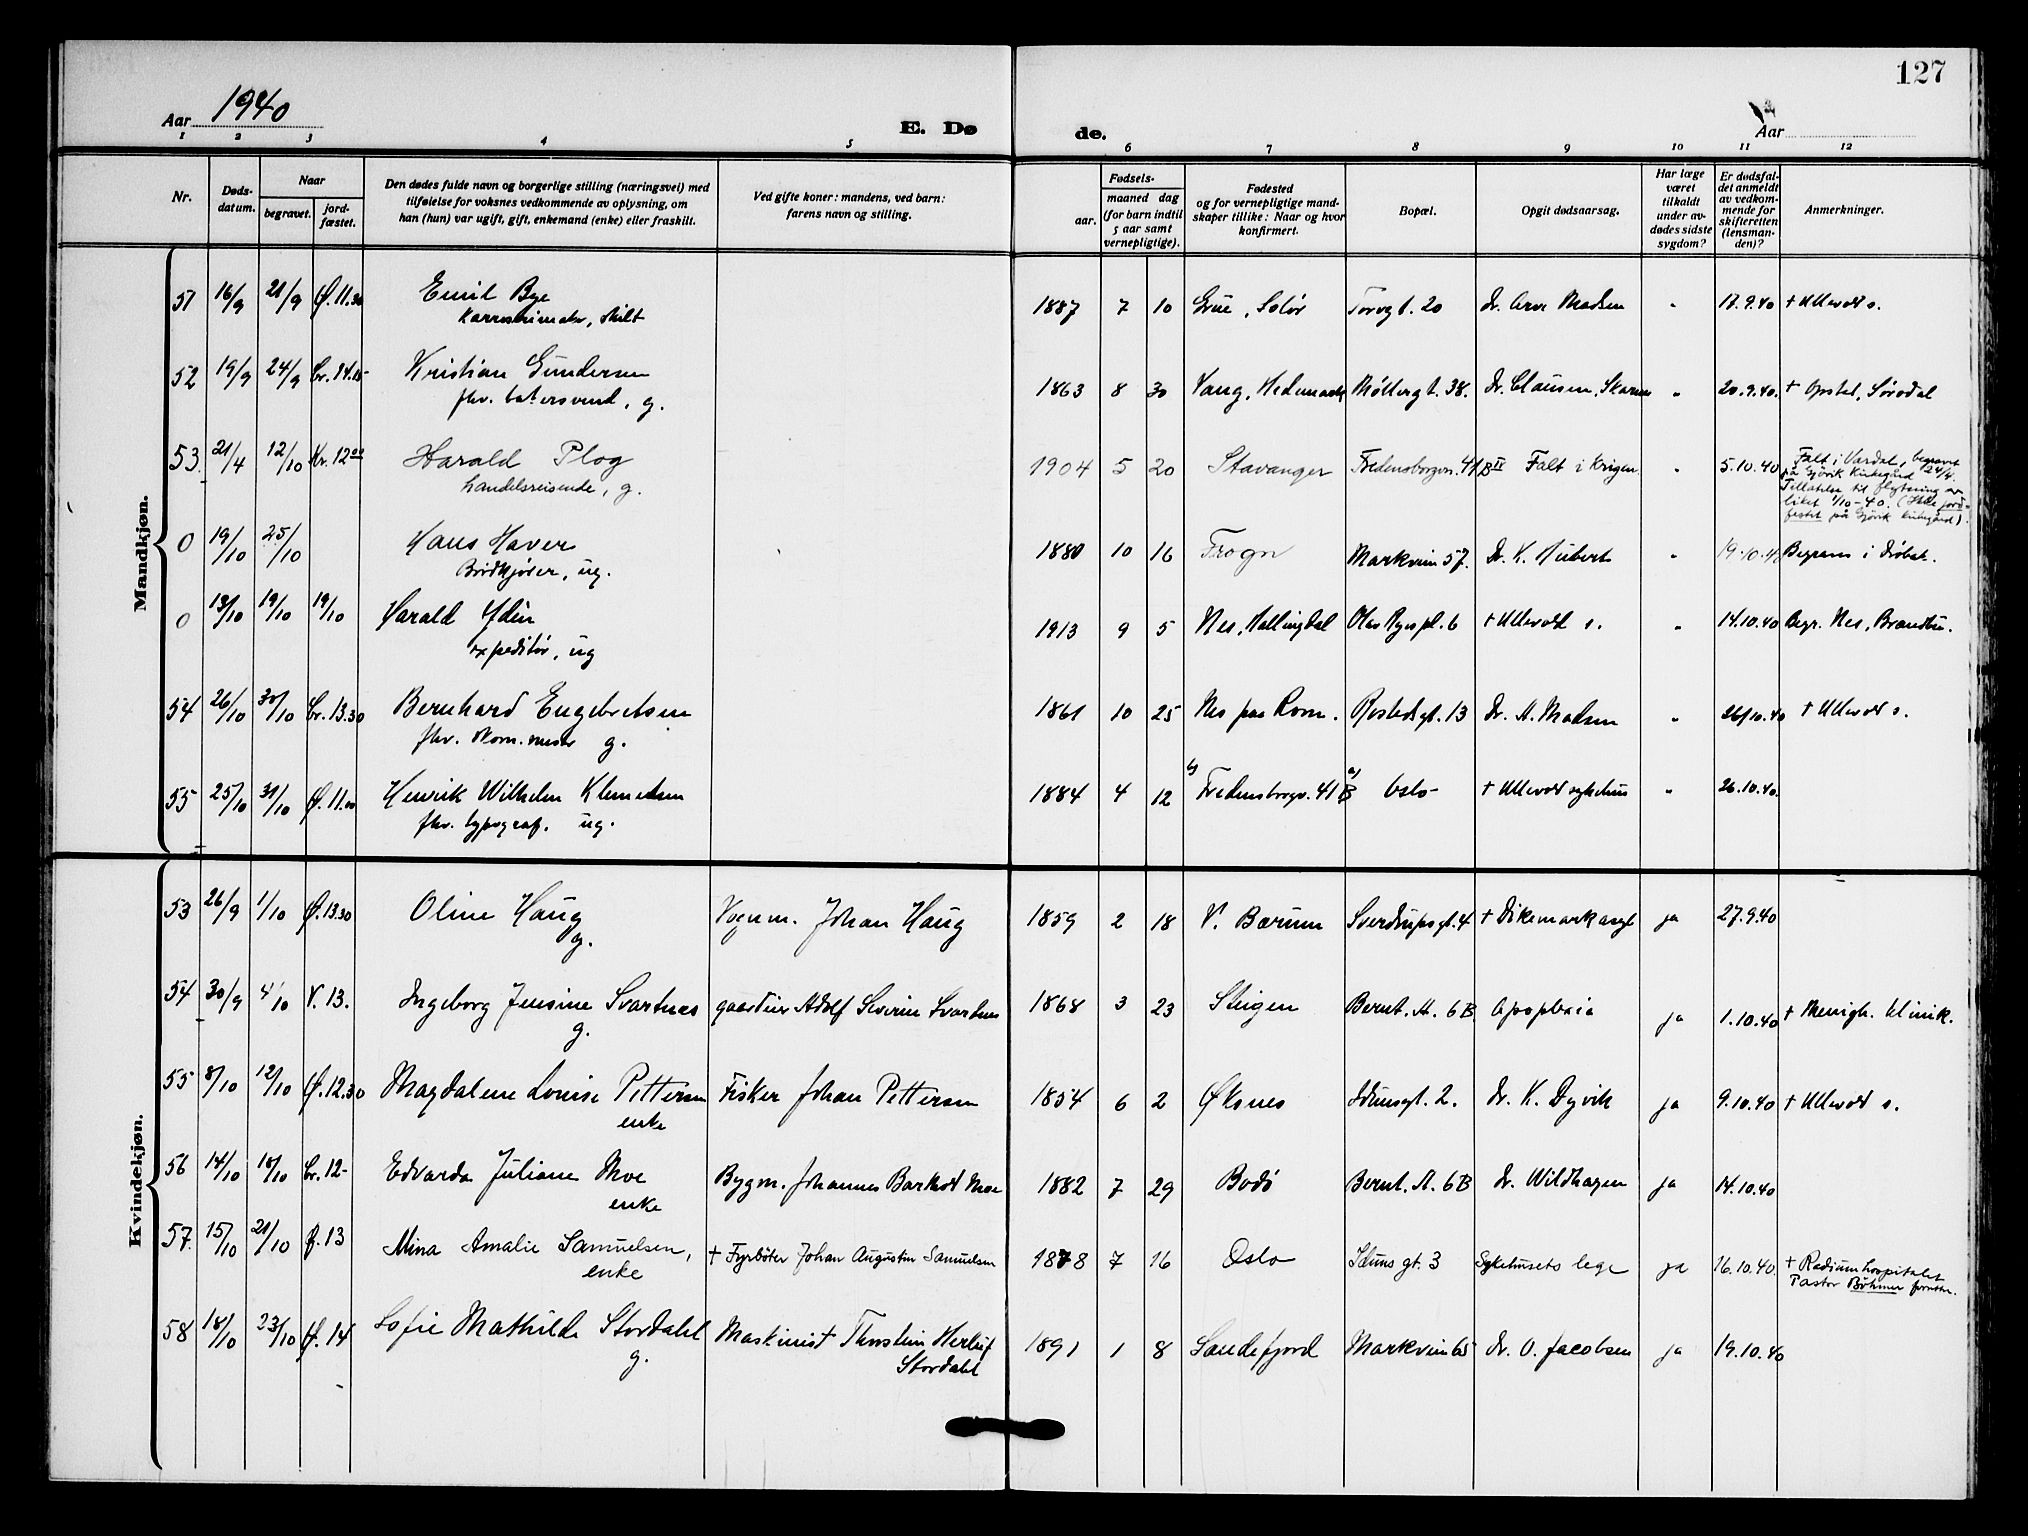 127
Aar 1940
E. Dø
de.
Aar
1 2 3 4 5 6 7 8 9 10 11 12
Nr.
Døds-
datum.
Naar
begravet.
jord-
fæstet.
Den dødes fulde navn og borgerlige stilling (næringsvei) med
tilføielse for voksnes vedkommende av oplysning, om
han (hun) var ugift, gift, enkemand (enke) eller fraskilt.
Ved gifte koner: mandens, ved barn:
farens navn og stilling.
Fødsels-
aar.
maaned dag
(for barn indtil
5 aar samt
vernepligtige).
Fødested
og for vernepligtige mand-
skaper tillike: Naar og hvor
konfirmert.
Bopæl.
Opgit dødsaarsag.
Har læge
været
tilkaldt
under av-
dødes sidste
sygdom?
Er dødsfal-
det anmeldt
av vedkom-
mende for
skifteretten
(lensman-
den)?
Anmerkninger.
Mandkjøn.
51 16/9 21/9 Ø. 11.30 Emil Bye 1887 7 10 Grue, Solør Torvgt. 20 Dr. Arve Madsen " 17.9.40 + Ullevål s.
skilt
52 19/9 24/9 Cr. 14.15 Kristian Gundersen 1863 8 30 Vang, Hedemark Møllergt. 38. Dr. Clausen, " 20.9.40. + Opstal, Sørodal
fhv. g.
53. 21/4 12/10 Kr. 1200 Harald Plog 1904 5 20 Stavanger Fredensborgvn. 41 B II Falt i krigen " 5.10.40
handelsreisende, g.
Falt i Vardal, begravet
på Gjøvik kirkegård 24/4.
Tillatelse til flytning av
liket 1/10-40. (Ikke jord-
festet på Gjøvik kirkegård).
0 19/10 25/10 Hans Haver 1880 10 16 Frogn Markveien 57. Dr. K. Hubert " 19.10.40 Begraves i Drøbak.
Brødkjører, ug.
0 13/10 19/10 19/10 Harald Ydin 1913 9 5 Nes, Hallingdal Olav Ryes pl. 6 + Ullevål s. " 14.10.40 Begr. Nes, Brandbu.
expeditør, ug
54 26/10 30/10 Cr. 13.30 Bernhard Engebretsen 1861 10 25 Nes paa Rom. Rostedsgt. 13 Dr. A. Madsen " 26/10.40 + Ullevål s.
fhv. g.
55 25/10 31/10 Ø. 11.00 Henrik Wilhelm Klemetsen 1884 4 12 b) Fredensborgv. 41 B a) Oslo + Ullevål sykehus " 26.10.40.
fhv. typograf. ug.
Kvindekjøn.
53 26/9 1/10 Ø. 13.30 Oline Haug Vognm. Johan Haug 1859 2 18 V. Bærum Sverdrupsgt. 4 + Dikemark asyl ja 27.9.40
g.
54 30/9 4/10 V. 13. Ingeborg Jensine Svartnes gaardeier Adolf Severin Svartnes 1868 3 23 Steigen Bernt. A. 6B Apoplexia ja 1.10.40 + Menigh. klinik.
g.
55 8/10 12/10 Ø. 12.30 Magdalene Louise Pettersen Fisker Johan Pettersen 1854 6 2 Øksnes Idunsgt. 2. Dr. K. Dyvik ja 9.10.40 + Ullevål s.
enke
56 14/10 18/10 Cr. 12- Edvarda Juliane Moe Bygm. Johannes Moe 1882 7 29 Bodø Bernt. A. 6B Dr. Wildhagen ja 14.10.40
enke
57. 15/10 21/10 f. 13 Mina Amalie Samuelsen, + Fyrbøter Johan Augustin Samuelsen 1878 7 16 Oslo Iduns gt. 3 Sykehusets lege ja 16.10.40. + Radiumhospitalet
enke
Pastor Böhmer forrettet.
58 18/10 23/10 Ø. 14 Sofie Mathilde Stordahl Maskinist Thorstein Herluf 1891 1 8 Sandefjord Markveien 65 Dr. O. Jacobsen ja 19.10.40
g.
Stordahl